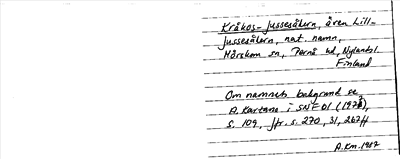 Kråkos-Jussesåkern, även Lill-
Jussesåkern, nat. namn,
Mörskom sn, Pernå hd, Nylands l.
Finland
Om namnets bakgrund se
A. Karsten i SNF 01 (1978),
s. 109, jfr s. 270, 31, 267 ff
A.Km. 1987